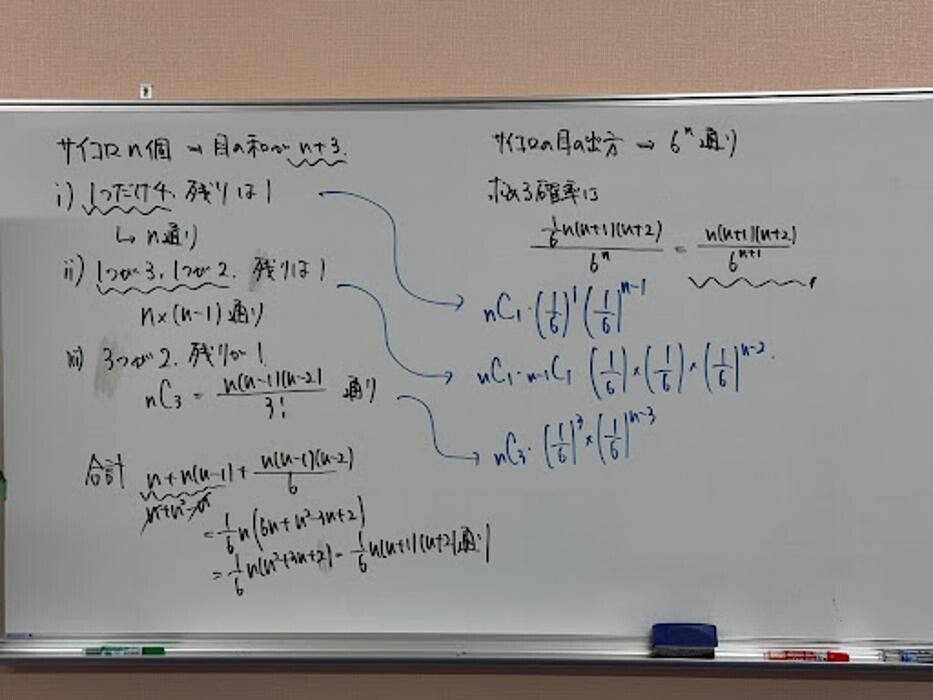 サイコロn個 → 目の和が n+3.
i) 1つだけ4、残りは1
↳ n通り
ii) 1つが3、1つが2、残りは1
n×(n-1)通り
iii) 3つが2、残りが1
nC₃ = n(n-1)(n-2)/3! 通り
合計 n+n(n-1)+ n(n-1)(n-2)/6
n+n²-n
= 1/6 n(6n+n²-3n+2)
= 1/6 n(n²+3n+2) = 1/6 n(n+1)(n+2)通り
サイコロの目の出方 → 6ⁿ通り
求める確率は
1/6 n(n+1)(n+2) / 6ⁿ = n(n+1)(n+2) / 6ⁿ⁺¹
nC₁・(1/6)¹(1/6)ⁿ⁻¹
nC₁・n-1C₁ (1/6)×(1/6)×(1/6)ⁿ⁻².
nC₃・(1/6)³×(1/6)ⁿ⁻³